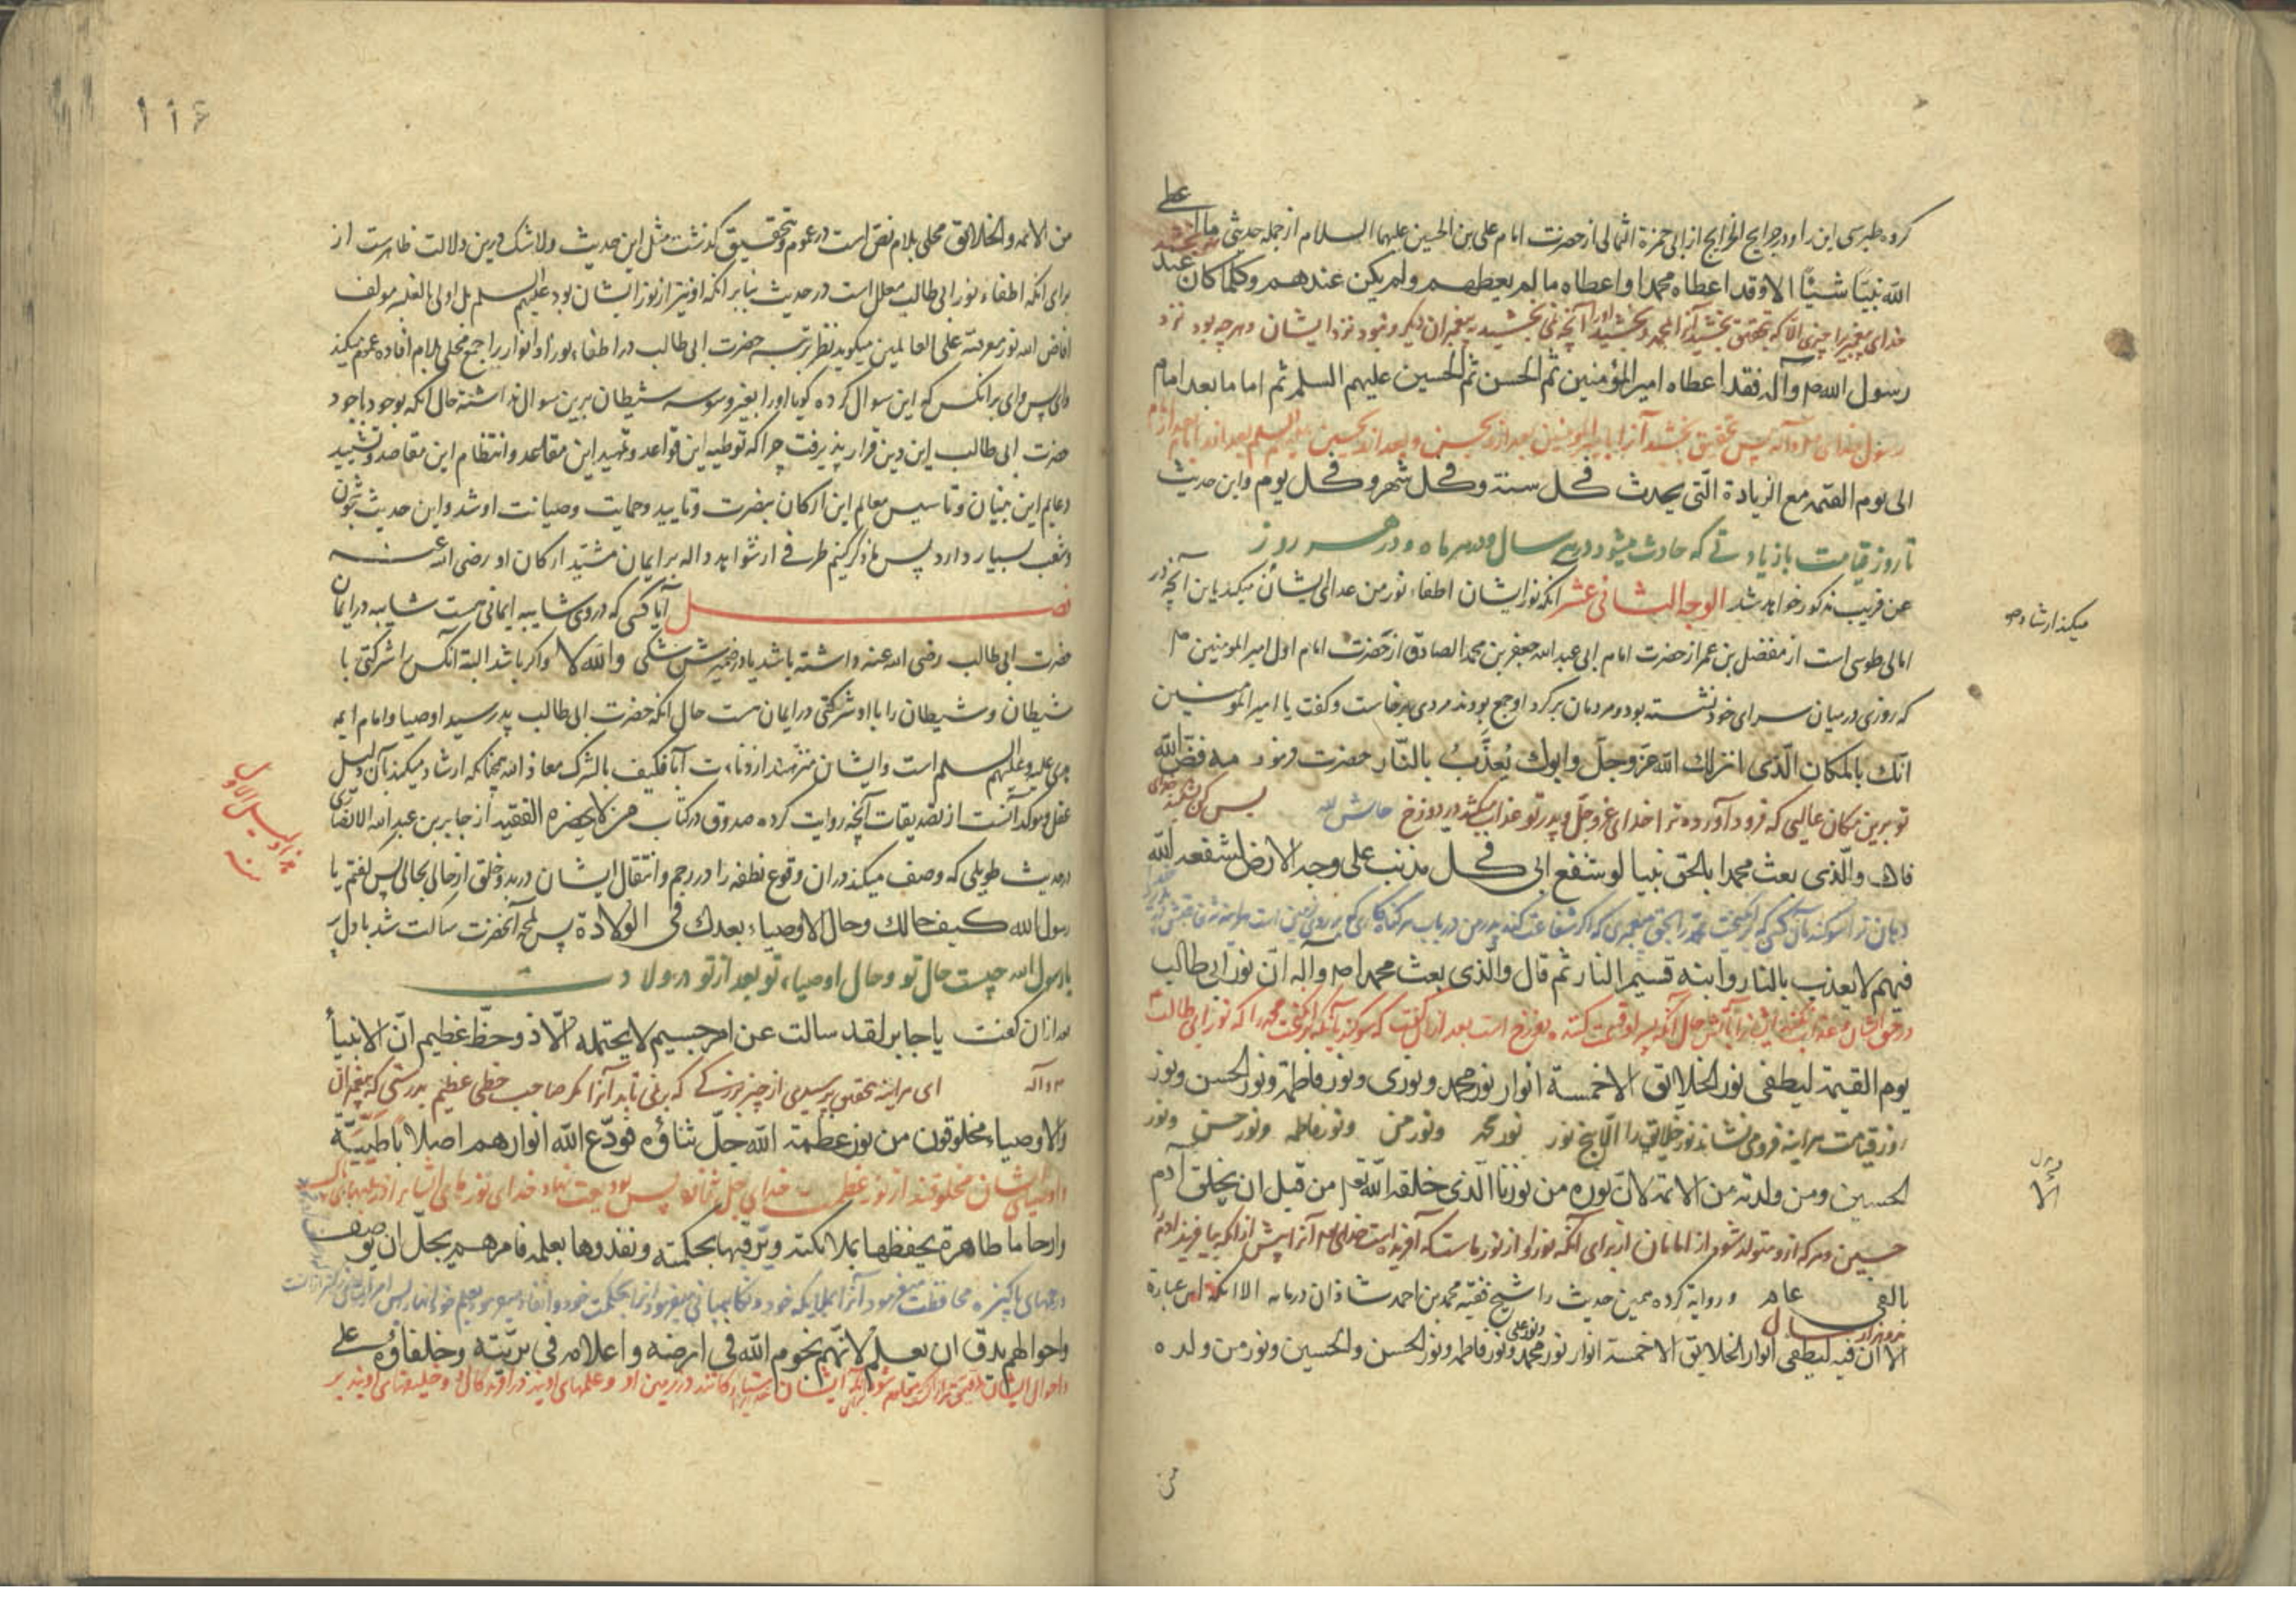 علی
کرده طبرسی این را در خرایج الجرایح از ابی حمزة الثمالی از حضرت امام علی بن الحسین علیهما السلام از جمله حدیثی ما
الله نبیّا شیئا الا وقد اعطاه محمدا واعطاه ما لم یعطهم ولم یکن عندهم وکلما کان عند
خدای پیغمبر را چیزی الا که بتحقیق بخشید آنرا بمحمد و بخشید او را آنچه نمی بخشید به پیغمبران دیگر و نبود نزد ایشان و هرچه بود نزد
رسول الله ص وآله فقد اعطاه امیر المؤمنین ثم الحسن ثم الحسین علیهم السلم ثم اماما بعد امام
رسول خدای ص وآله پس بتحقیق بخشید آنرا بامیر المؤمنین بعد از او بحسن و بعد از او بحسین علیهم السلم بعد از او
الی یوم القیمة مع الزیادة الّتی یحدث فی کل سنة وفی کل شهر وفی کل یوم واین حدیث
تا روز قیامت با زیادتی که حادث میشود در هر سال و در هر ماه و در هر روز
عن قریب مذکور خواهد شد الوجه الثانی عشر انکه نور ایشان اطفاء نور من عدای ایشان میکند باین آنچه در
میکند ارشاد
امالی طوسی است از مفضل بن عمر از حضرت امام ابی عبد الله جعفر بن محمد الصادق از حضرت امام اول امیر المومنین
که روزی در میان سرای خود نشسته بود و مردمان بر کرد او جمع بودند مردی برخاست و کفت یا امیر المومنین
انّک بالمکان الّذی انزلک الله عزّ وجلّ وابوک یُعذّب بالنّار حضرت فرمود مه فضّ الله
تو برین مکان عالیی که فرود آورده ترا خدای عزّ وجلّ و پدر تو عذاب میکشد در دوزخ حاش لله بس کن
فاک والّذی بعث محمدا بالحق نبیا لو شفع ابی فی کل مذنب علی وجه الارض لشفعه الله
دهان ترا سوکند بآن کسی که برانکیخت محمد را بحق پیغمبری که اگر شفاعت کند پدر من در باب هر کناه کاری که بر روی زمین است
فیهم لا یعذب بالنار وابنه قسیم النار ثم قال والّذی بعث محمدا ص وآله انّ نور ابی طالب
دوزخ است بعد از آن کفت که سوکند بآنکه برانکیخت محمد را که نور ابی طالب
یوم القیمة لیطفی نور الخلایق الا خمسة انوار نور محمد ونوری ونور فاطمة ونور الحسن ونور
روز قیامت هر آینه فرو می نشاند نور خلایق را الا پنج نور نور محمد و نور من و نور فاطمه و نور حسن و نور
الحسین ومن ولدته من الائمة لان نوره من نورنا الّذی خلقه الله تعم من قبل ان یخلق آدم
حسین و هر که از و متولد شود از امامان از برای آنکه نور او از نور ماست که آفریده است خدای آنرا پیش از آنکه بیافریند آدم را
بالفی عام و روایة کرده همین حدیث را شیخ فقیه محمد بن احمد شاذان در مایه الا انکه این عبارة
بدو هزار سال
الا ان فیه لیطفی انوار الخلایق الا خمسة انوار نور محمد ونور علی ونور فاطمه ونور الحسن والحسین ونور من ولده
من
من الائمه والخلائق محلی بلام نص است در عموم و تحقیق کذشت مثل این حدیث ولا شک درین دلالت ظاهرست از
برای انکه اطفاء نور ابی طالب معلل است در حدیث بنا بر انکه او نیز از نور ایشان بود علیهم السلم بل اولی بالغلبه مولف
افاض الله نور معرفته علی العالمین میکوید نظر بمرتبه حضرت ابی طالب در اطفاء نور او انوار را جمع محلی بلام افاده عموم میکند
وای پس وای بر انکس که این سوال کرده کویا او را بغیر وسوسه شیطان برین سوال نداشته حال آنکه بوجود باجود
حضرت ابی طالب این دین قرار پذیرفت چرا که توطیه این قواعد و تمهید این مقاعد و انتظام این مقاصد و تشیید
دعایم این بنیان و تاسیس معالم این ارکان بنصرت و تایید و حمایت و صیانت او شد و این حدیث شجون
و شعب بسیار دارد پس ما ذکر کنیم طرفی از شواهد داله بر ایمان مشیّد ارکان او رضی الله عنه
فصل آیا کسی که در وی شایبه ایمانی هست شایبه در ایمان
حضرت ابی طالب رضی الله عنه داشته باشد یا در ضمیرش شکی والله لا واکر باشد البته آنکس را شرکتی با
شیطان و شیطان را با او شرکتی در ایمان هست حال انکه حضرت ابی طالب پدر سید اوصیا و امام ایمه
هدی علیه وعلیهم السلم است و ایشان منزهند از فکیف بالشرک معاذ الله همچنانکه ارشاد میکند بآن دلیل
عقل و موکد آنست از تصدیقات آنچه روایت کرده صدوق در کتاب من لا یحضره الفقیه از جابر بن عبد الله الانصاری
در حدیث طویلی که وصف میکند در ان وقوع نطفه را در رحم و انتقال ایشان در بدو خلق از حالی بحالی پس کفتم یا
رسول الله کیف حالک وحال الاوصیاء بعدک فی الولادة پس لمحه آنحضرت ساکت شد با دل پر
یا رسول الله چیست حال تو و حال اوصیاء تو بعد از تو در ولادت
بعد از ان کفت یا جابر لقد سالت عن امر جسیم لا یحتمله الّا ذو حظّ عظیم انّ الانبیاء
ای هر اینه بتحقیق پرسیدی از چیز بزرکی که بر نمی تابد آنرا مکر صاحب حظی عظیم بدرستی که پیغمبران
والاوصیاء مخلوقون من نور عظمة الله جلّ ثناؤه فودّع الله انوارهم اصلابا طیّبة
و اوصیای ایشان مخلوقند از نور عظمت خدای جل ثنائه پس ودیعت نهاد خدای نورهای ایشانرا در صلبهای پاک
وارحاما طاهرة یحفظها بملائکته ویرّبیها بحکمته ویغذوها بعلمه فامرهم یجلّ ان یوصف
رحمهای پاکیزه محافظت میفرمود آنرا بملایکه خود و نکاهبانی میفرمود انرا بحکمت خود
واحوالهم تدقّ ان یعلم لانّهم نجوم الله فی ارضه واعلامه فی بریّته وخلفاؤه علی
و احوال ایشان ایشان ستارکانند در زمین او و علمهای اویند در آفریدکان او و خلیفهای اویند بر